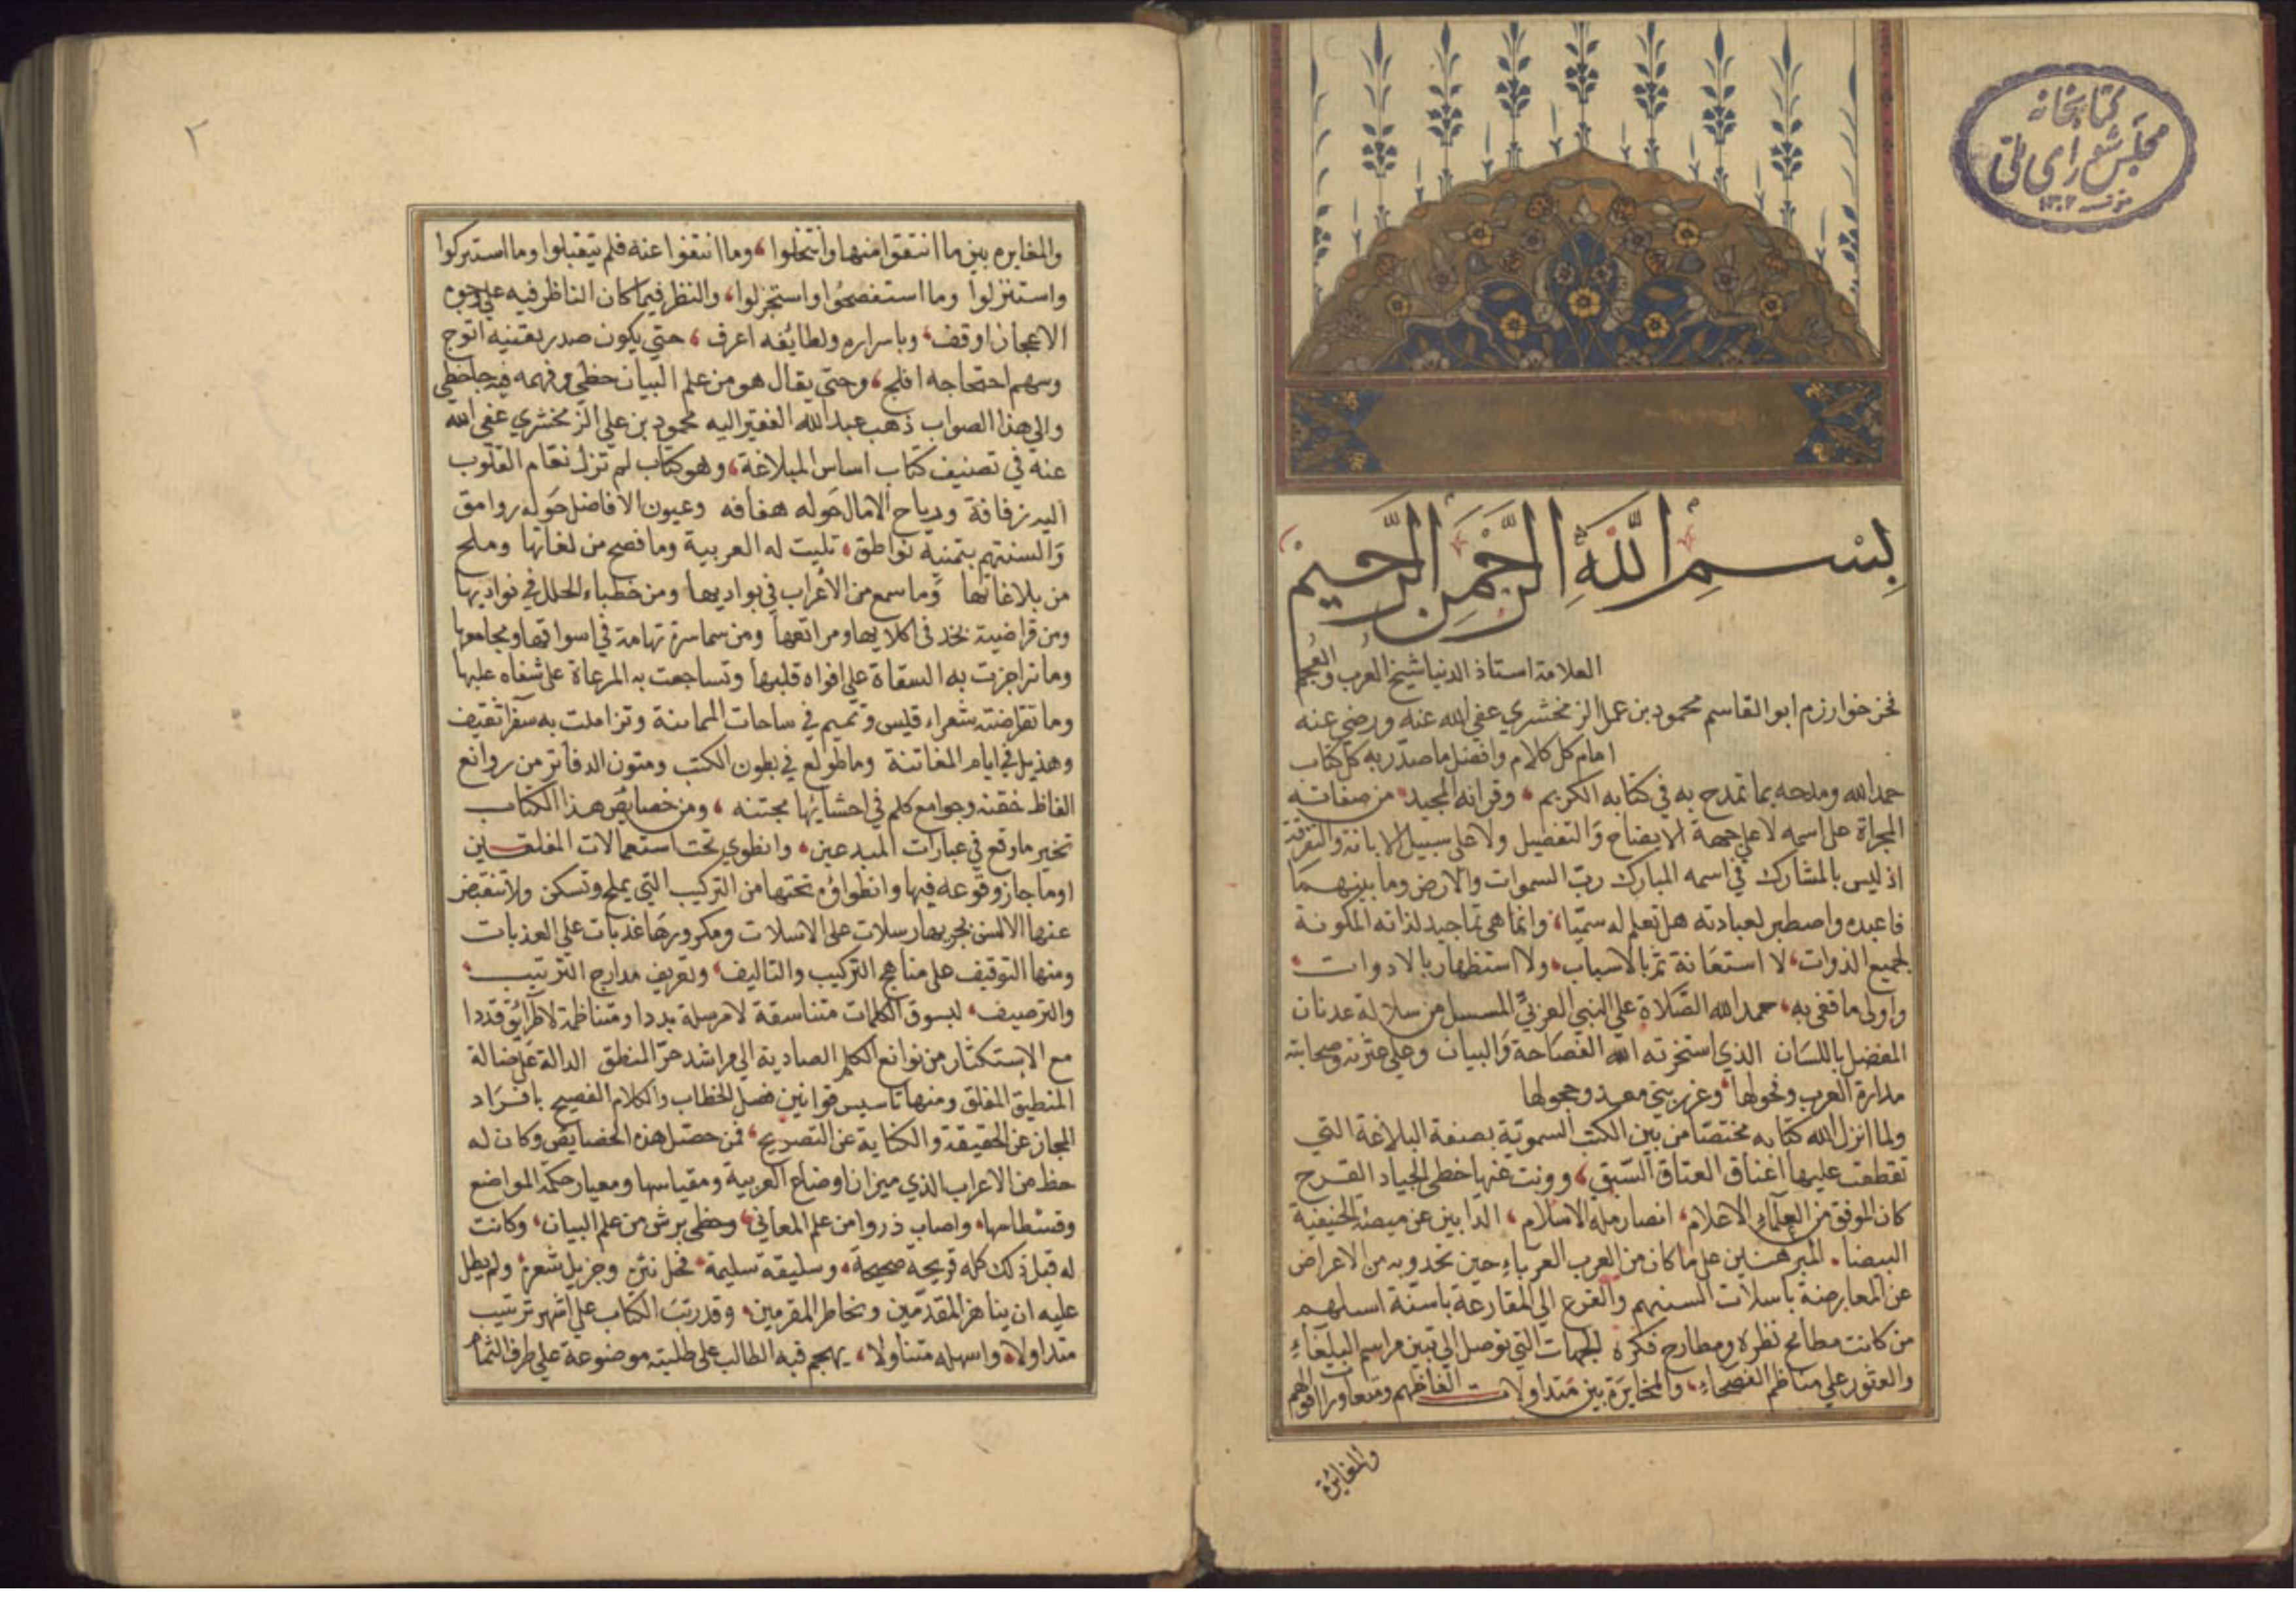 كتابخانه
مجلس شورای ملی
بسم الله الرحمن الرحيم
العلامة استاذ الدنيا شيخ العرب والعجم
فخر خوارزم ابو القاسم محمود بن عمر الزمخشري عفي الله عنه ورضي عنه
امام كل كلام وافضل ما صدّر به كل كتاب
حمد الله ومدحه بما تمدح به في كتابه الكريم، وقرانه المجيد، من صفاته
المجراة على اسمه لا على جهة الايضاح والتفضيل ولا على سبيل الابانة والتفرقة
اذ ليس بالمشارك في اسمه المبارك ربّ السموات والارض وما بينهما
فاعبده واصطبر لعبادته هل تعلم له سميّا، وانما هي تماجيد لذاته المكونة
لجميع الذوات، لا استعانة ثمّ بالاسباب، ولا استظهار بالادوات،
واولى ما قفي به، حمد الله الصّلاة على النبي العربيّ المسسل من سلالة عدنان
المفضل باللسان الذي استخزنه الله الفصاحة والبيان وعلى عترته وصحابته
مدارة العرب وفحولها، وغرر بني معد وحجولها
ولما انزل الله كتابه مختصّا من بين الكتب السموية بصفة البلاغة التي
تقطعت عليها اعناق العتاق السّبّق، وونت عنها خطى الجياد القرح
كان الموفق من العلماء الاعلام، انصار ملة الاسلام، الذابين عن بيضة الحنيفية
البيضا، المبرهنين على ما كان من العرب العرباء حين تحدوا به من الاعراض
عن المعارضة باسلات السنتهم والفزع الي المقارعة باسنّة اسلهم
من كانت مطامح نظره ومطارح فكره لجهات التي توصل الي تبين مراسم البلغاء
والعثور على مناظم الفصحاء، والمخايرة بين متداولات الفاظهم ومتعاور افواههم
والمغايرة
٢
والمغايره بين ما انتقوا منها وانتخلوا، وما انتفوا عنه فلم يتقبلوا وما استركوا
واستنزلوا وما استفصحوا واستجزلوا، والنظر فيما كان الناظر فيه على وجوه
الاعجاز اوقف، وباسراره ولطايفه اعرف، حتي يكون صدر يقينه اثوج
وسهم احتجاجه افلج، وحتي يقال هو من علم البيان حظي وفهمه فيه جاحظي
والي هذا الصواب ذهب عبد الله الفقير اليه محمود بن علي الزمخشري عفي الله
عنه في تصنيف كتاب اساس البلاغة، وهو كتاب لم تزل نعام القلوب
اليه زفافة ورياح الامال حوله هفافه وعيون الافاضل حوله روامق
والسنتهم بتمنيه نواطق، تليت له العربية وما فصح من لغاتها وملح
من بلاغاتها وما سمع من الأعراب في بواديها ومن خطباء الحلل في نواديها
ومن قراضبة نجد في اكلايها ومراتعها ومن سماسرة تهامة في اسواقها ومجامعها
وما تراجزت به السقاة على افواه قلبها وتساجعت به الرعاة على شفاه علبها
وما تقارضته شعراء قيس وتميم في ساحات المماتنة وتزاملت به سفرا ثقيف
وهذيل في ايام المفاتنة وما طولع في بطون الكتب ومتون الدفاتر من روائع
الفاظ مفتنه وجوامع كلم في احشايها مجتنه، ومن خصايص هذا الكتاب
تخير ما وقع في عبارات المبدعين، وانطوي تحت استعمالات المفلقين
او ما جاز وقوعه فيها وانطواؤه تحتها من التركيب التي يملح وتسكن ولا تنقبض
عنها الالسن بجريها رسلات على الاسلات ومكرورها عذبات علي العذبات
ومنها التوقيف على مناهج التركيب والتاليف، وتعريف مدارج الترتيب،
والترصيف، لبسوق الكلمات متناسقة لا مرسلة بددا ومتناظمة لا طرائق قددا
مع الاستكثار من نوابغ الكلم الهادية الي مراشد حرّ المنطق الدالة علي ضالة
المنطيق المفلق ومنها تاسيس قوانين فصل الخطاب والكلام الفصيح بافراد
المجاز عن الحقيقة والكناية عن التصريح، فمن حصّل هذه الخصايص وكان له
حظ من الاعراب الذي ميزان اوضاع العربية ومقياسها ومعيار حكمة المواضع
وقسطاسها، واصاب ذروا من علم المعاني، وحظي برش من علم البيان، وكانت
له قبل ذلك كله قريحة صحيحة، وسليقة سليمة، فحل نثره وجزيل شعره ولم يطل
عليه ان يناهز المقدّمين ويخاطر المقرمين، وقد رتّب الكتاب علي اشهر ترتيب
متداولا، واسهله متناولا، يهجم فيه الطالب على طلبته موضوعة علي طرف الثمام